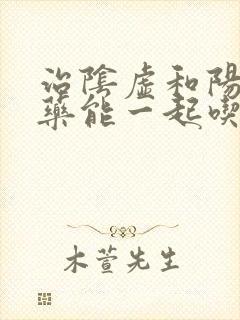 治陰虛和陽
藥能一起喫
木萱先生